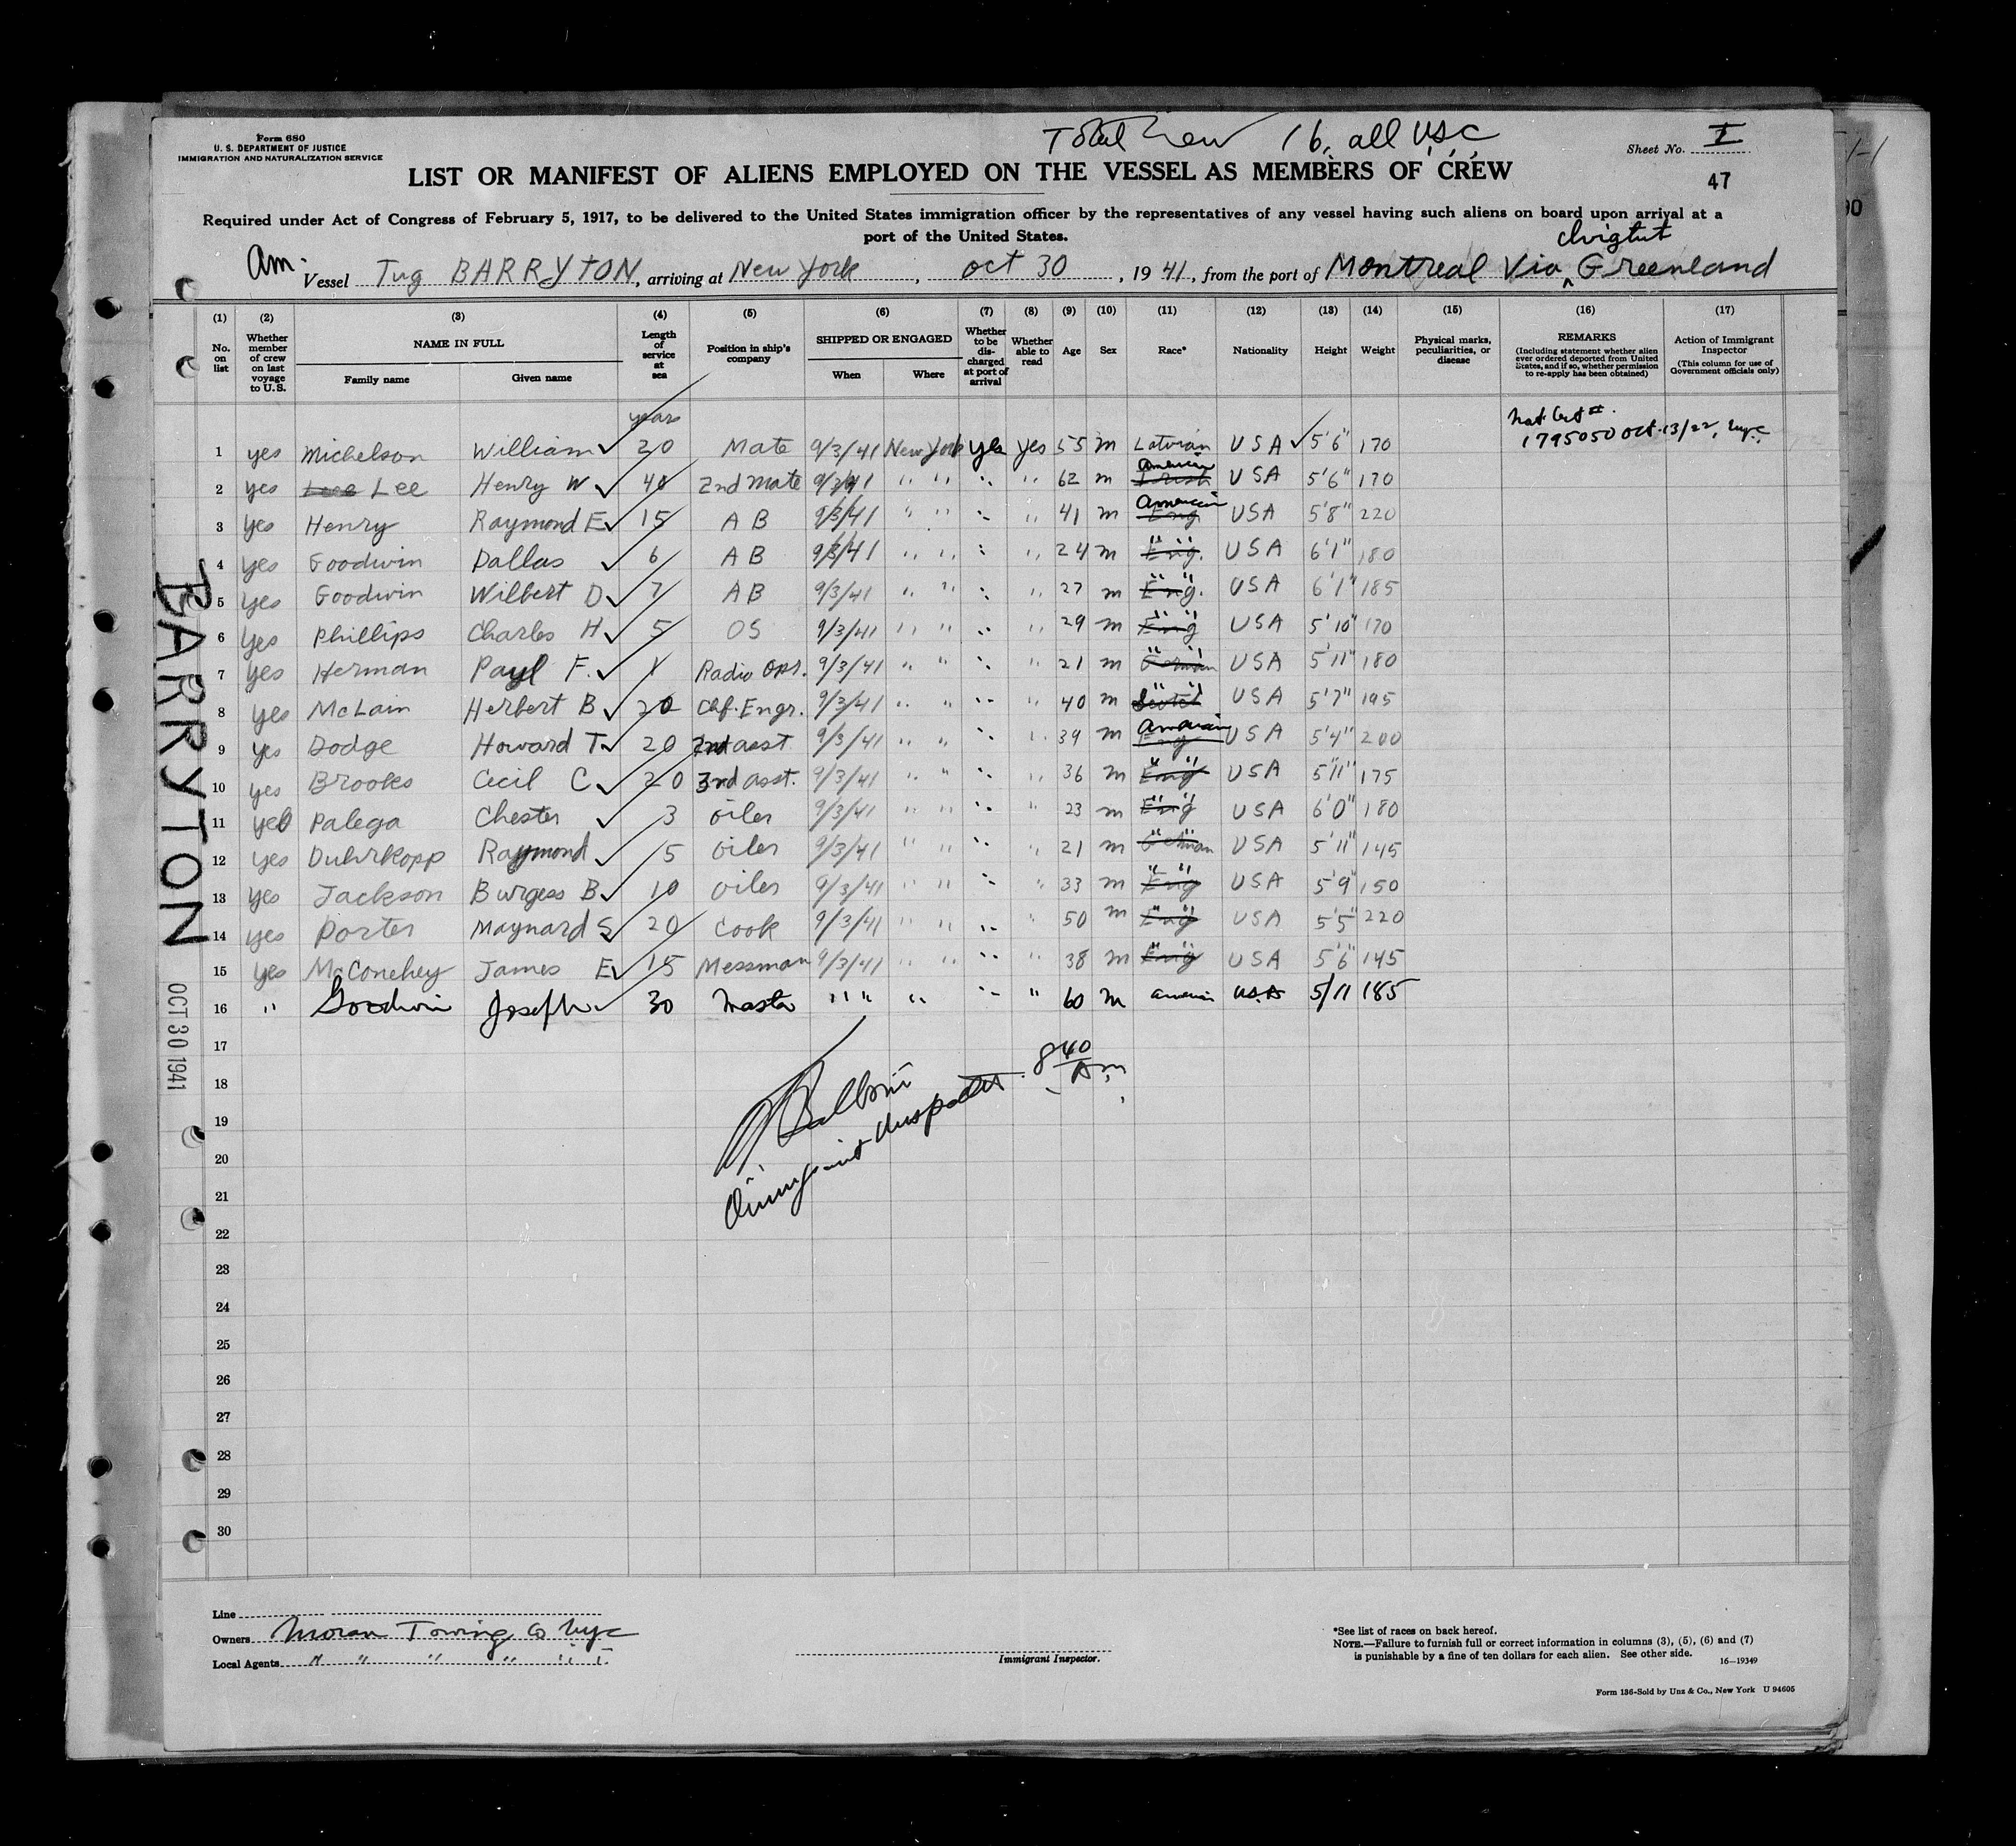 Form 680
U. S. DEPARTMENT OF JUSTICE
IMMIGRATION AND NATURALIZATION SERVICE
Total Crew 16, all U.S.C.
Sheet No. I
47
LIST OR MANIFEST OF ALIENS EMPLOYED ON THE VESSEL AS MEMBERS OF CREW
Required under Act of Congress of February 5, 1917, to be delivered to the United States immigration officer by the representatives of any vessel having such aliens on board upon arrival at a
port of the United States.
Am. Vessel Tug BARRYTON, arriving at New York, Oct 30, 1941, from the port of Montreal Via Ivigtut Greenland
(1) No. on list
(2) Whether member of crew on last voyage to U.S.
(3) NAME IN FULL Family name Given name
(4) Length of service at sea
(5) Position in ship's company
(6) SHIPPED OR ENGAGED When Where
(7) Whether to be discharged at port of arrival
(8) Whether able to read
(9) Age
(10) Sex
(11) Race*
(12) Nationality
(13) Height
(14) Weight
(15) Physical marks, peculiarities, or disease
(16) REMARKS (Including statement whether alien ever ordered deported from United States, and if so, whether permission to re-apply has been obtained)
(17) Action of Immigrant Inspector (This column for use of Government officials only)
years
Nat Cert #.
1 yes Michelson William ✓ 20 Mate 9/3/41 New York yes yes 55 m Latvian USA ✓ 5'6" 170 1795050 Oct 13/22, NYC
2 yes Lee Henry W ✓ 40 2nd mate 9/3/41 " " " " 62 m American Irish USA 5'6" 170
3 yes Henry Raymond E ✓ 15 AB 9/3/41 " " " " 41 m American Eng USA 5'8" 220
4 yes Goodwin Dallas ✓ 6 AB 9/3/41 " " " " 24 m " " Eng. USA 6'1" 180
5 yes Goodwin Wilbert D ✓ 7 AB 9/3/41 " " " " 27 m " " Eng. USA 6'1" 185
6 yes Phillips Charles H ✓ 5 OS 9/3/41 " " " " 29 m " " Eng USA 5'10" 170
7 yes Herman Paul F. ✓ 1 Radio Opr. 9/3/41 " " " " 21 m " " German USA 5'11" 180
8 yes McLain Herbert B ✓ 20 Chf. Engr. 9/3/41 " " " " 40 m " " Scotch USA 5'7" 195
9 yes Dodge Howard T ✓ 20 2nd asst 9/3/41 " " " " 39 m American Eng USA 5'4" 200
10 yes Brooks Cecil C ✓ 20 3rd asst. 9/3/41 " " " " 36 m " " Eng USA 5'11" 175
11 yes Palega Chester ✓ 3 oiler 9/3/41 " " " " 23 m " " Eng USA 6'0" 180
12 yes Duhrkopp Raymond ✓ 5 oiler 9/3/41 " " " " 21 m " " German USA 5'11" 145
13 yes Jackson Burgess B ✓ 10 oiler 9/3/41 " " " " 33 m " " Eng USA 5'9" 150
14 yes Porter Maynard S ✓ 20 Cook 9/3/41 " " " " 50 m " " Eng USA 5'5" 220
15 yes McConehey James E ✓ 15 Messman 9/3/41 " " " " 38 m " " Eng USA 5'6" 145
16 " Goodwin Joseph ✓ 30 Master " " " " " 60 m American U.S.A 5/11 185
17
18
19
20
21
22
23
24
25
26
27
28
29
30
Balboni 8 40 Am
Immigrant Inspector
BARRYTON
OCT 30 1941
Line
Owners Moran Towing Co NYC
Local Agents " " " " " "
Immigrant Inspector.
*See list of races on back hereof.
NOTE.—Failure to furnish full or correct information in columns (3), (5), (6) and (7)
is punishable by a fine of ten dollars for each alien. See other side.
16—19349
Form 136-Sold by Unz & Co., New York U 94605